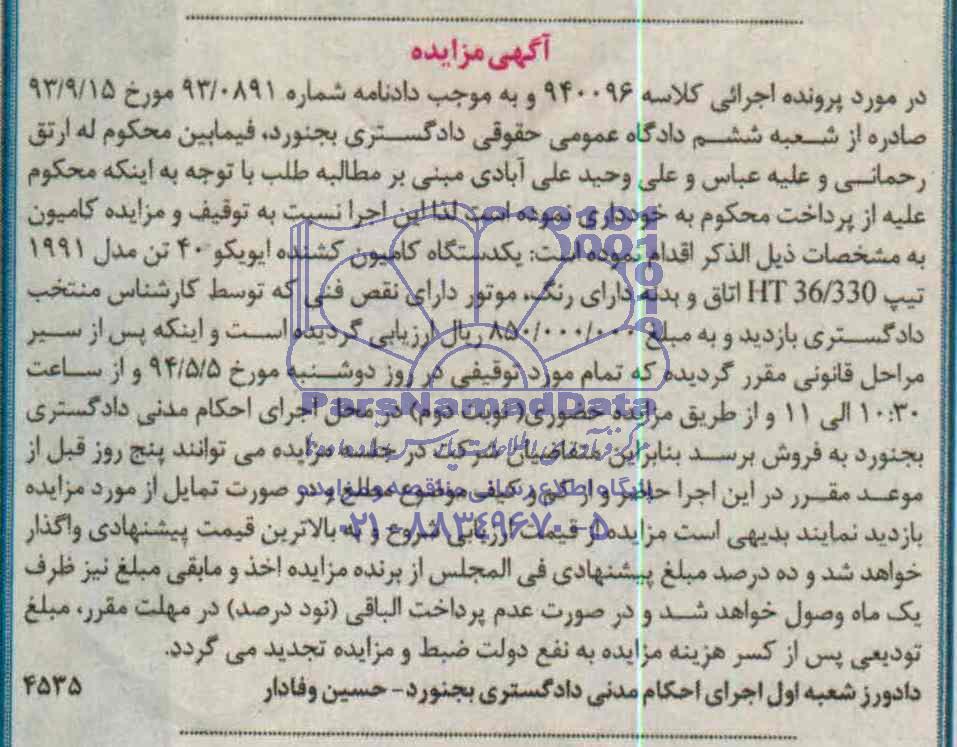 آگهی مزایده
در مورد پرونده اجرائی کلاسه ۹۴۰۰۹۶ و به موجب دادنامه شماره ۹۳/۰۸۹۱ مورخ ۹۳/۹/۱۵
صادره از شعبه ششم دادگاه عمومی حقوقی دادگستری بجنورد، فیمابین محکوم له ارتق
رحمانی و علیه عباس و علی وحید علی آبادی مبنی بر مطالبه طلب با توجه به اینکه محکوم
علیه از پرداخت محکوم به خودداری نموده است لذا این اجرا نسبت به توقیف و مزایده کامیون
به مشخصات ذیل الذکر اقدام نموده است: یکدستگاه کامیون کشنده ایویکو ۴۰ تن مدل ۱۹۹۱
تیپ HT 36/330 اتاق و بدنه دارای رنگ، موتور دارای نقص فنی که توسط کارشناس منتخب
دادگستری بازدید و به مبلغ ۸۵۰/۰۰۰/۰۰۰ ریال ارزیابی گردیده است و اینکه پس از سیر
مراحل قانونی مقرر گردیده که تمام مورد توقیفی در روز دوشنبه مورخ ۹۴/۵/۵ و از ساعت
۱۰:۳۰ الی ۱۱ و از طریق مزایده حضوری( نوبت دوم) در محل اجرای احکام مدنی دادگستری
ParsNamadData
بجنورد به فروش برسد بنابراین متقاضیان شرکت در جلسه مزایده می توانند پنج روز قبل از
موعد مقرر در این اجرا حاضر و از کم و کیف موضوع مطلع و در صورت تمایل از مورد مزایده
پایگاه اطلاع رسانی مناقصه و مزایده
بازدید نمایند بدیهی است مزایده از قیمت ارزیابی شروع و به بالاترین قیمت پیشنهادی واگذار
۰۲۱-۸۸۳۴۹۶۷۰-۵
خواهد شد و ده درصد مبلغ پیشنهادی فی المجلس از برنده مزایده اخذ و مابقی مبلغ نیز ظرف
یک ماه وصول خواهد شد و در صورت عدم پرداخت الباقی (نود درصد) در مهلت مقرر، مبلغ
تودیعی پس از کسر هزینه مزایده به نفع دولت ضبط و مزایده تجدید می گردد.
دادورز شعبه اول اجرای احکام مدنی دادگستری بجنورد- حسین وفادار
۴۵۳۵